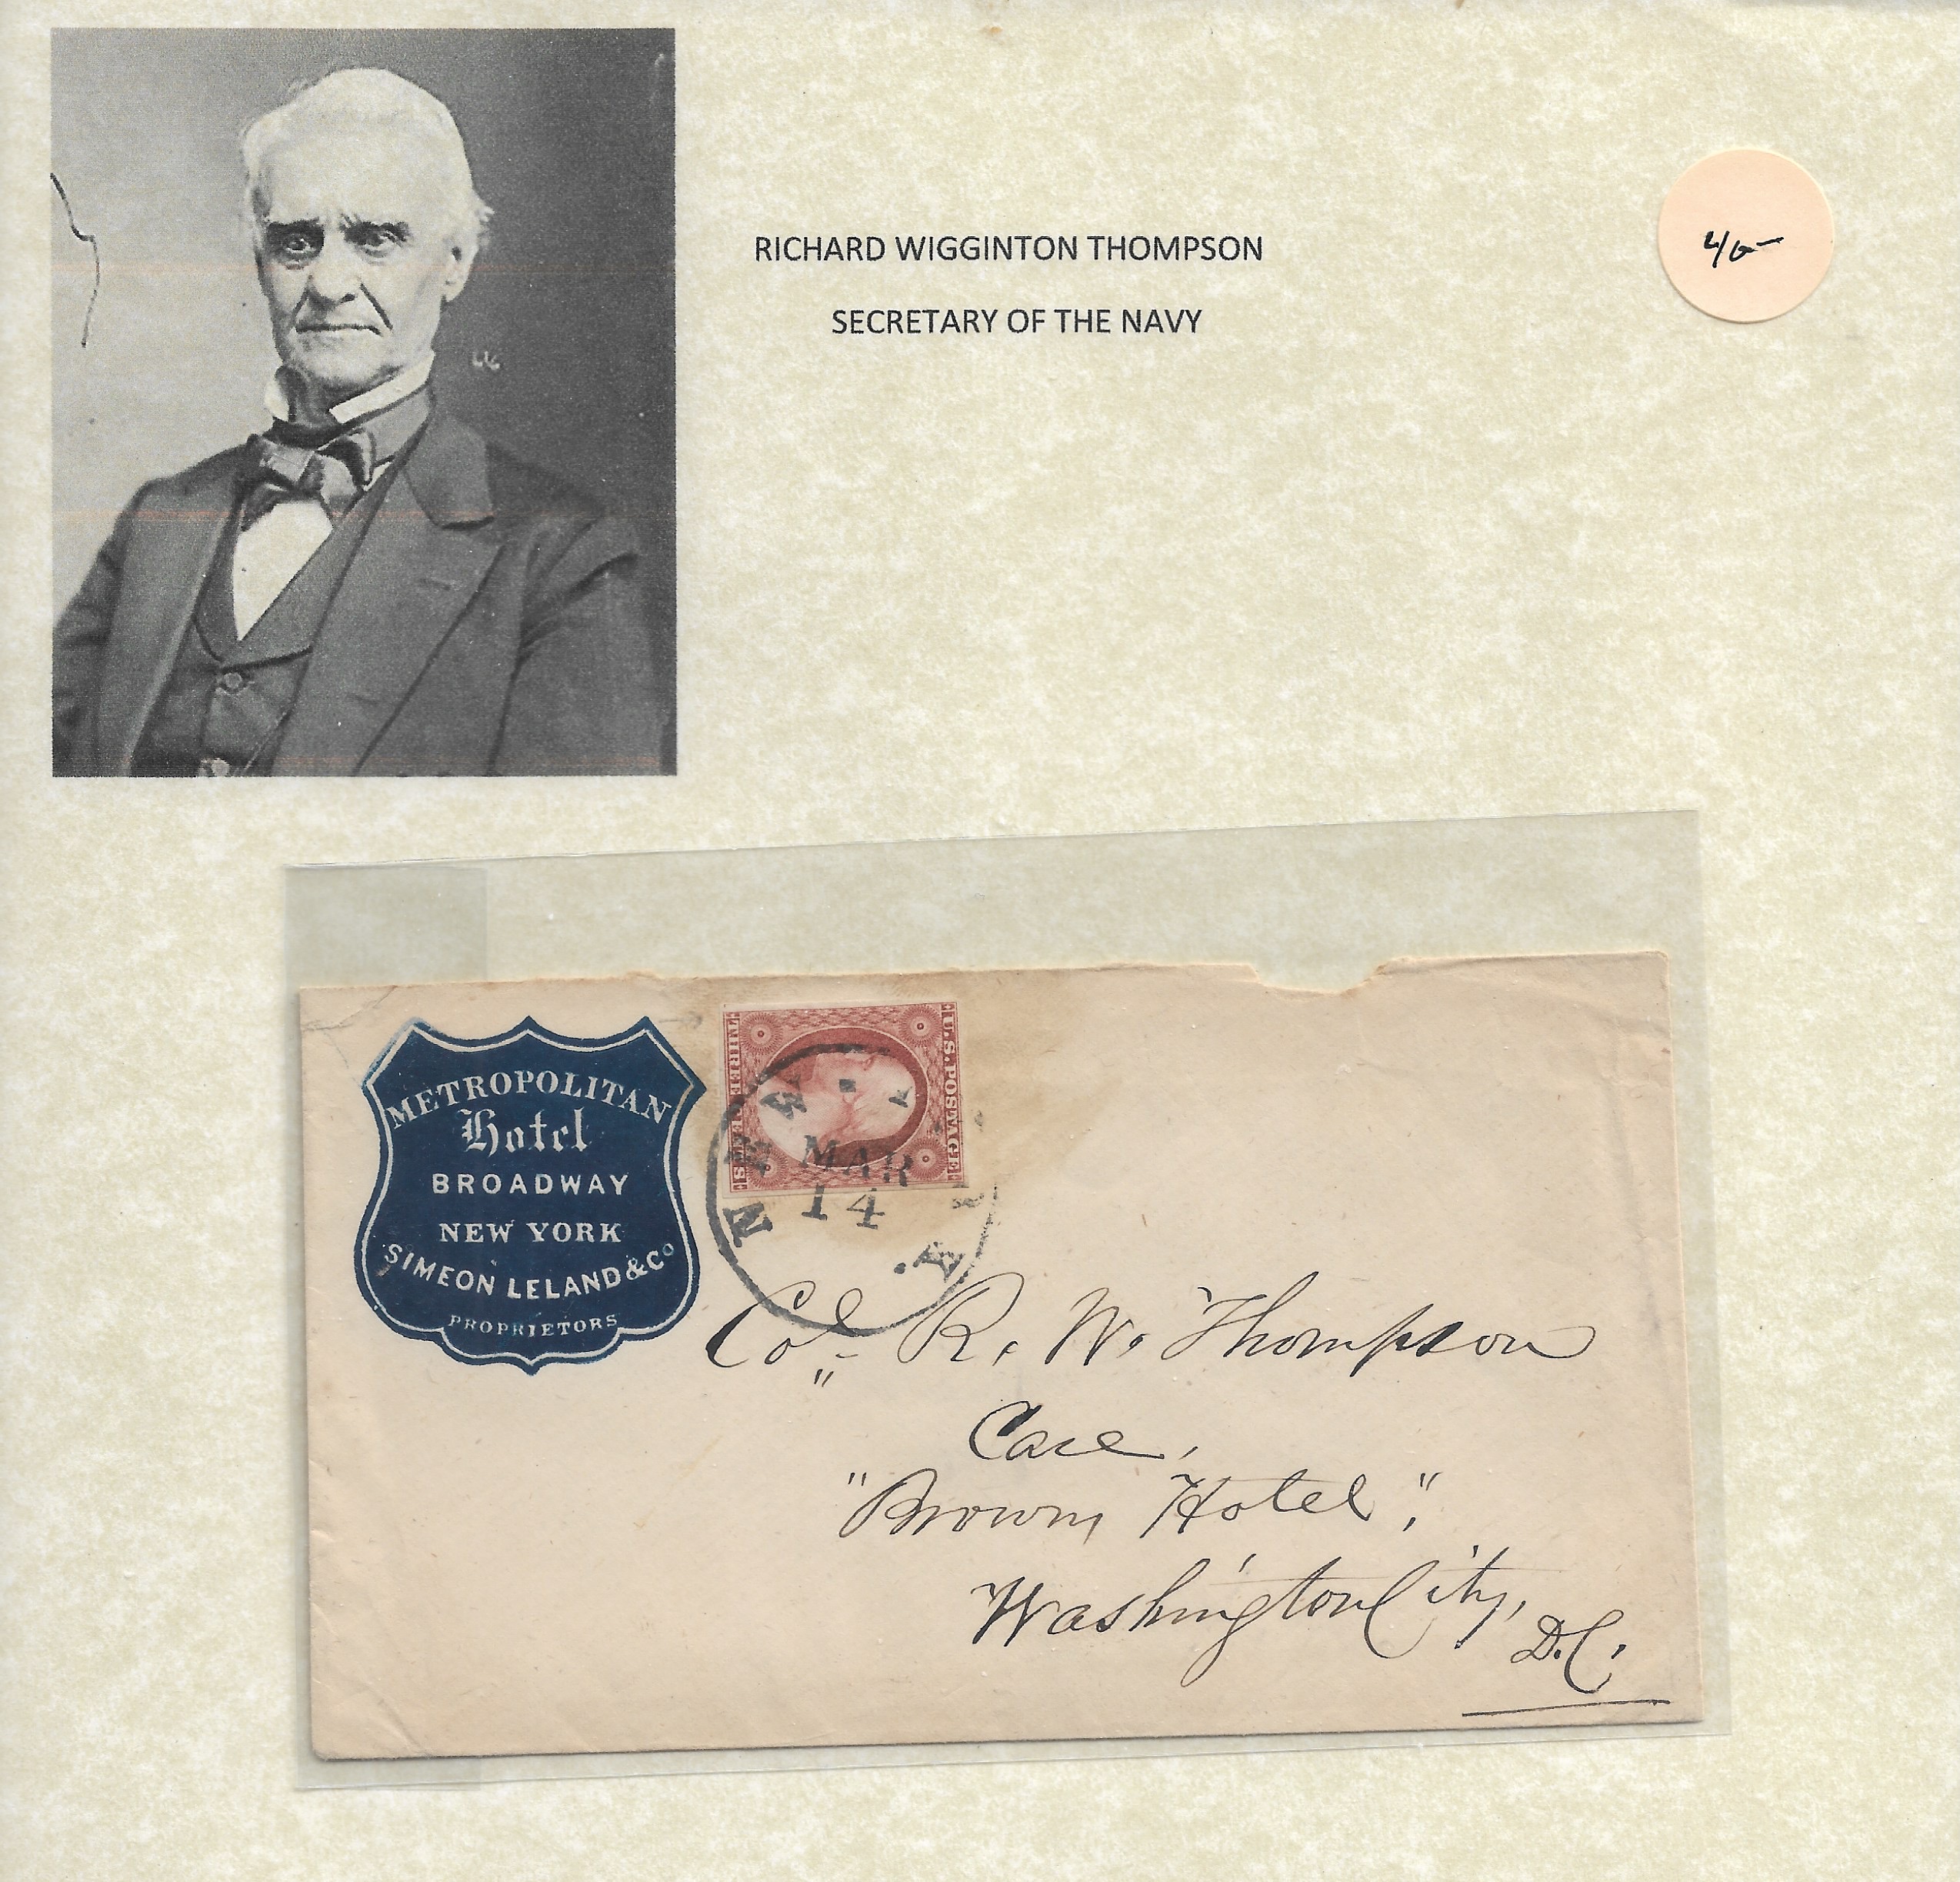 RICHARD WIGGINTON THOMPSON
SECRETARY OF THE NAVY
METROPOLITAN
Hotel
BROADWAY
NEW YORK
SIMEON LELAND & Co
PROPRIETORS
U.S. POSTAGE
THREE CENTS
NEW
MAR
14
Y.
Col. R. W. Thompson
Care,
"Brown Hotel",
Washington City,
D.C.